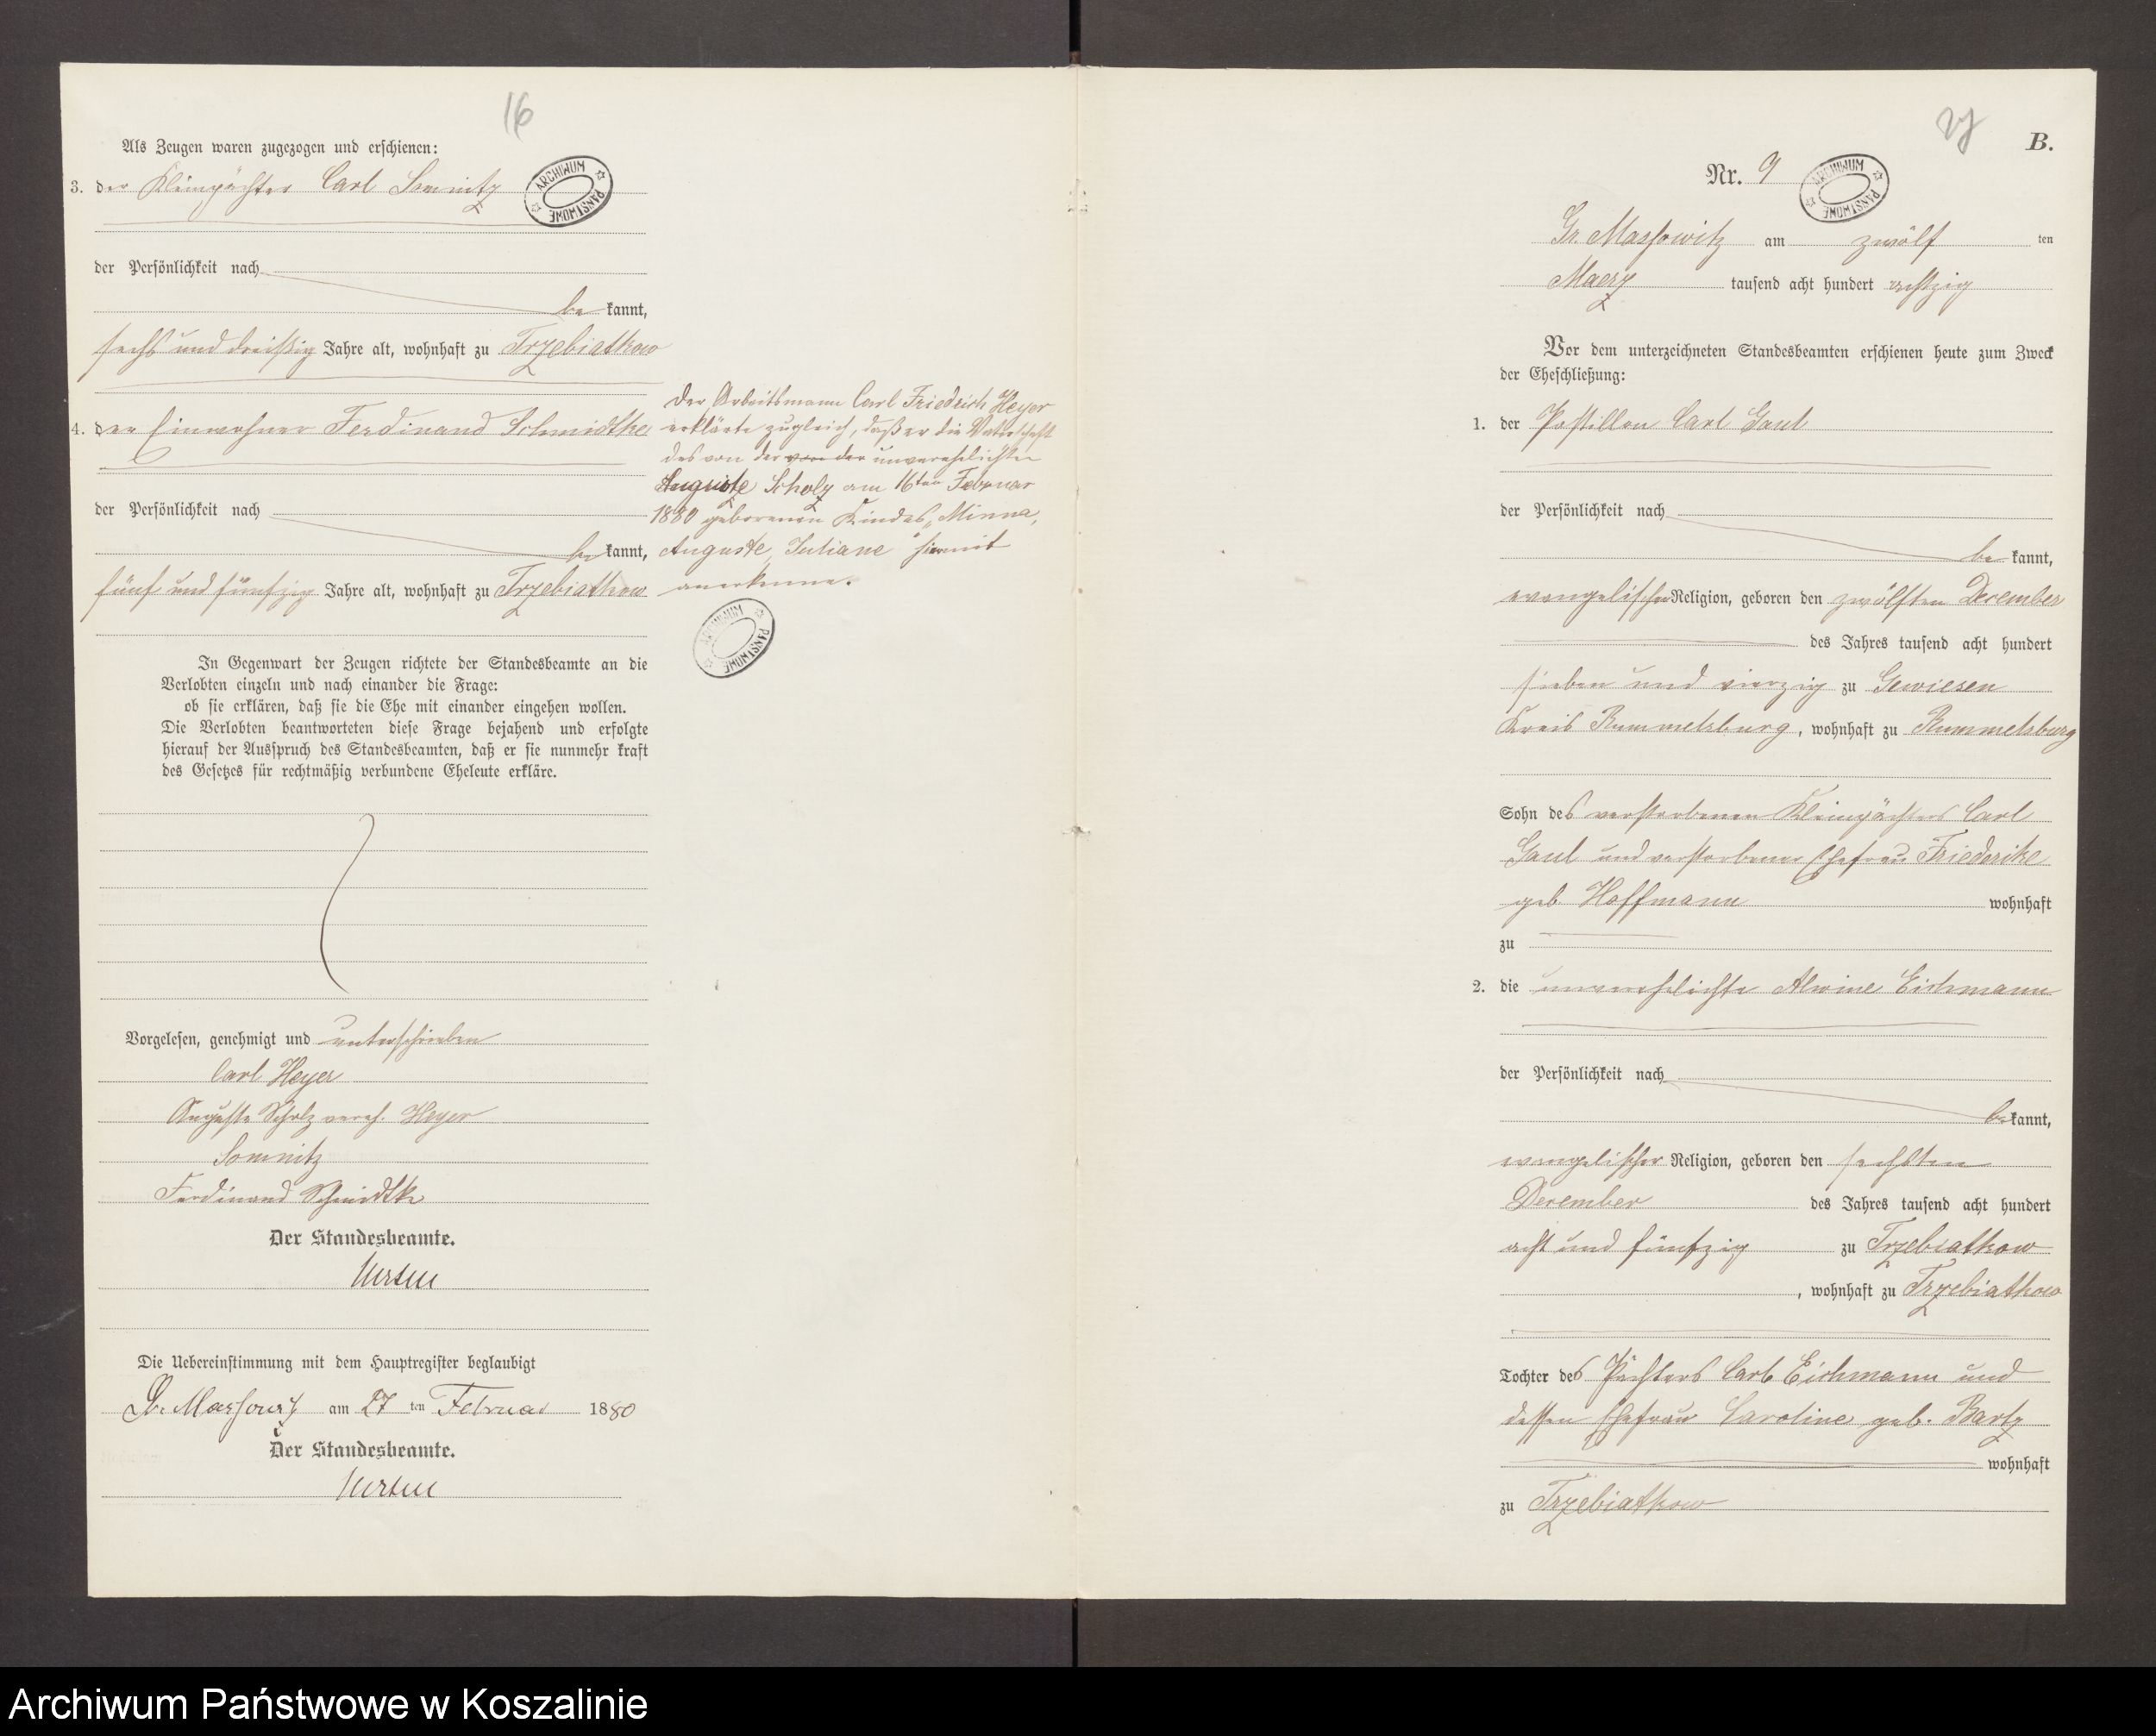 16
Als Zeugen waren zugezogen und erschienen:
3. der Kleinpächter Carl Somnitz
ARCHIWUM PAŃSTWOWE
der Persönlichkeit nach
be kannt,
sechs und dreißig Jahre alt, wohnhaft zu Trzebiatkow
4. der Einwohner Ferdinand Schmidtke
der Persönlichkeit nach
be kannt,
fünf und fünfzig Jahre alt, wohnhaft zu Trzebiatkow
In Gegenwart der Zeugen richtete der Standesbeamte an die
Verlobten einzeln und nach einander die Frage:
ob sie erklären, daß sie die Ehe mit einander eingehen wollen.
Die Verlobten beantworteten diese Frage bejahend und erfolgte
hierauf der Ausspruch des Standesbeamten, daß er sie nunmehr kraft
des Gesetzes für rechtmäßig verbundene Eheleute erkläre.
Vorgelesen, genehmigt und unterschrieben
Carl Heyer
Auguste Scholz vereh. Heyer
Somnitz
Ferdinand Schmidtke
Der Standesbeamte.
Die Uebereinstimmung mit dem Hauptregister beglaubigt
Gr. Massowitz am 27 ten Februar 1880
Der Standesbeamte.
Der Arbeitsmann Carl Friedrich Heyer
erklärte zugleich, daß er die Vaterschaft
des von der von der unverehelichten
Auguste Scholz am 16ten Februar
1880 geborenen Kindes „Minna,
Auguste, Juliane" hiermit
anerkenne.
ARCHIWUM PAŃSTWOWE
27
B.
Nr. 9
ARCHIWUM PAŃSTWOWE
Gr. Massowitz am zwölf ten
Maerz tausend acht hundert achtzig
Vor dem unterzeichneten Standesbeamten erschienen heute zum Zweck
der Eheschließung:
1. der Postillon Carl Gaul
der Persönlichkeit nach
be kannt,
evangelischer Religion, geboren den zwölften December
des Jahres tausend acht hundert
sieben und vierzig zu Gewiesen
Kreis Rummelsburg, wohnhaft zu Rummelsburg
Sohn des verstorbenen Kleinpächters Carl
Gaul und verstorbener Ehefrau Friederike
geb Hoffmann wohnhaft
zu
2. die unverehelichte Alwine Eichmann
der Persönlichkeit nach
be kannt,
evangelischer Religion, geboren den sechsten
December des Jahres tausend acht hundert
acht und fünfzig zu Trzebiatkow
, wohnhaft zu Trzebiatkow
Tochter des Pächters Carl Eichmann und
dessen Ehefrau Caroline geb. Bartz
wohnhaft
zu Trzebiatkow
Archiwum Państwowe w Koszalinie